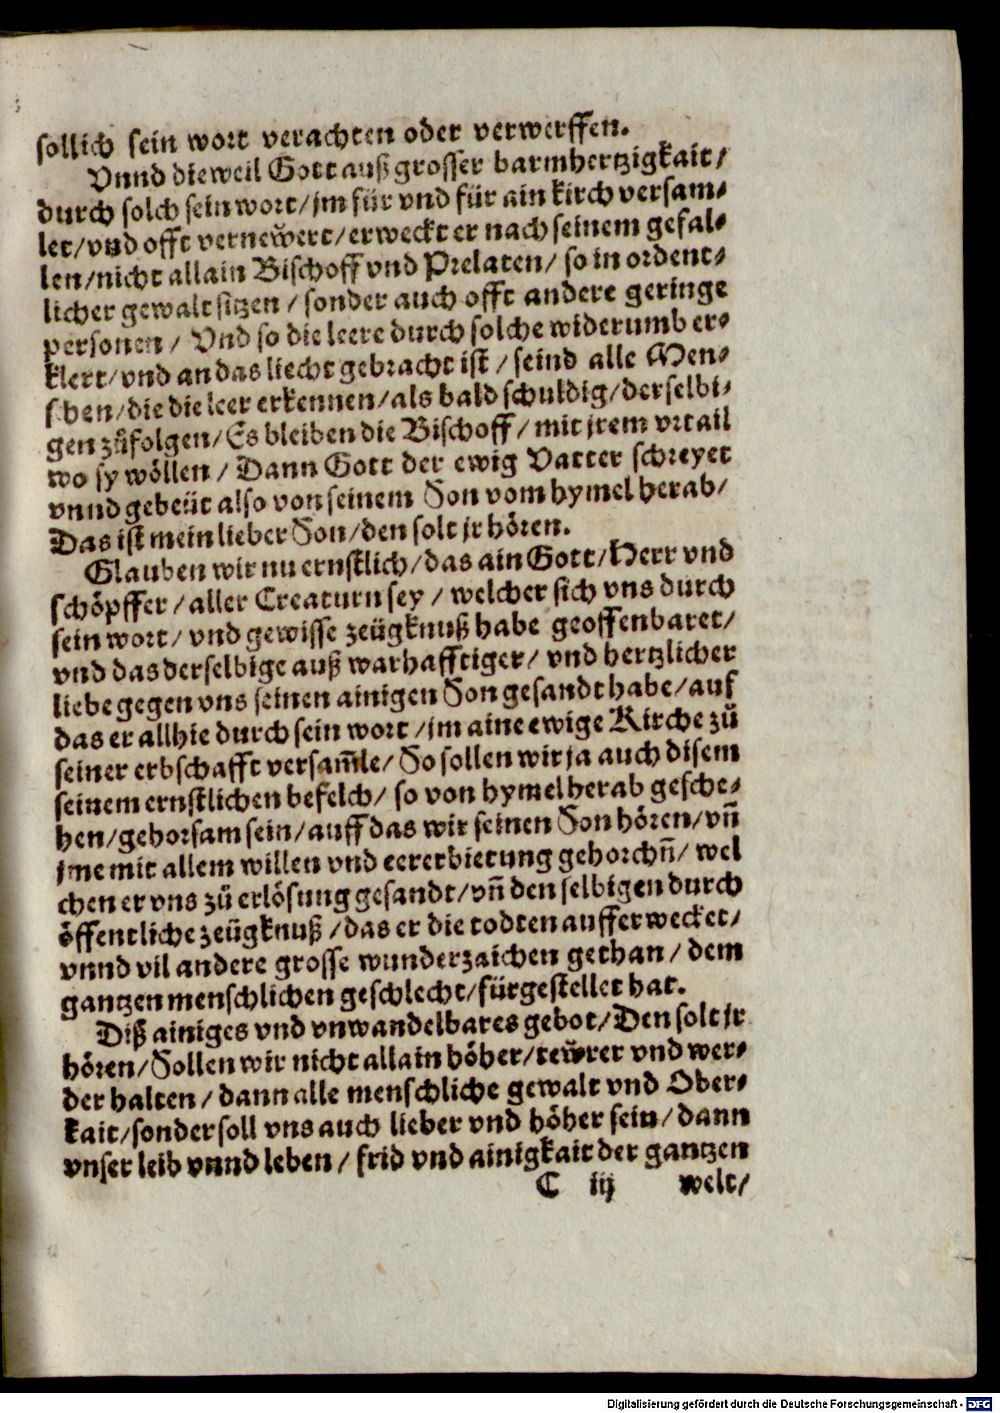 sollich sein wort verachten oder verwerffen.
Vnnd dieweil Gott auß grosser barmhertzigkait/
durch solch sein wort/jm für vnd für ain kirch versam⸗
let/vnd offt vernewert/erweckt er nach seinem gefal⸗
len/nicht allain Bischoff vnd Prelaten/ so in ordent⸗
licher gewalt sitzen / sonder auch offt andere geringe
personen / Vnd so die leere durch solche widerumb er⸗
klert/vnd an das liecht gebracht ist / seind alle Men⸗
schen/die die leer erkennen/als bald schuldig/derselbi⸗
gen zůfolgen/Es bleiben die Bischoff / mit jrem vrtail
wo sy wöllen / Dann Gott der ewig Vatter schreyet
vnnd gebeüt also von seinem Son vom hymel herab/
Das ist mein lieber Son/den solt jr hören.
Glauben wir nu ernstlich/das ain Gott/Herr vnd
schöpffer / aller Creaturn sey / welcher sich vns durch
sein wort/ vnd gewisse zeügknuß habe geoffenbaret/
vnd das derselbige auß warhafftiger/ vnd hertzlicher
liebe gegen vns seinen ainigen Son gesandt habe/auf
das er allhie durch sein wort /jm aine ewige Kirche zů
seiner erbschafft versam̃le/ So sollen wir ja auch disem
seinem ernstlichen befelch/ so von hymel herab gesche⸗
hen/gehorsam sein/auff das wir seinen Son hören/vñ
jme mit allem willen vnd eererbietung gehorchñ/ wel
chen er vns zů erlösung gesandt/vñ den selbigen durch
öffentliche zeügknuß /das er die todten aufferwecket/
vnnd vil andere grosse wunderzaichen gethan / dem
gantzen menschlichen geschlecht/fürgestellet hat.
Diß ainiges vnd vnwandelbares gebot/Den solt jr
hören/Sollen wir nicht allain höher/tewrer vnd wer⸗
der halten / dann alle menschliche gewalt vnd Ober⸗
kait/sonder soll vns auch lieber vnd höher sein/dann
vnser leib vnnd leben / frid vnd ainigkait der gantzen
C iij welt/
Digitalisierung gefördert durch die Deutsche Forschungsgemeinschaft - DFG